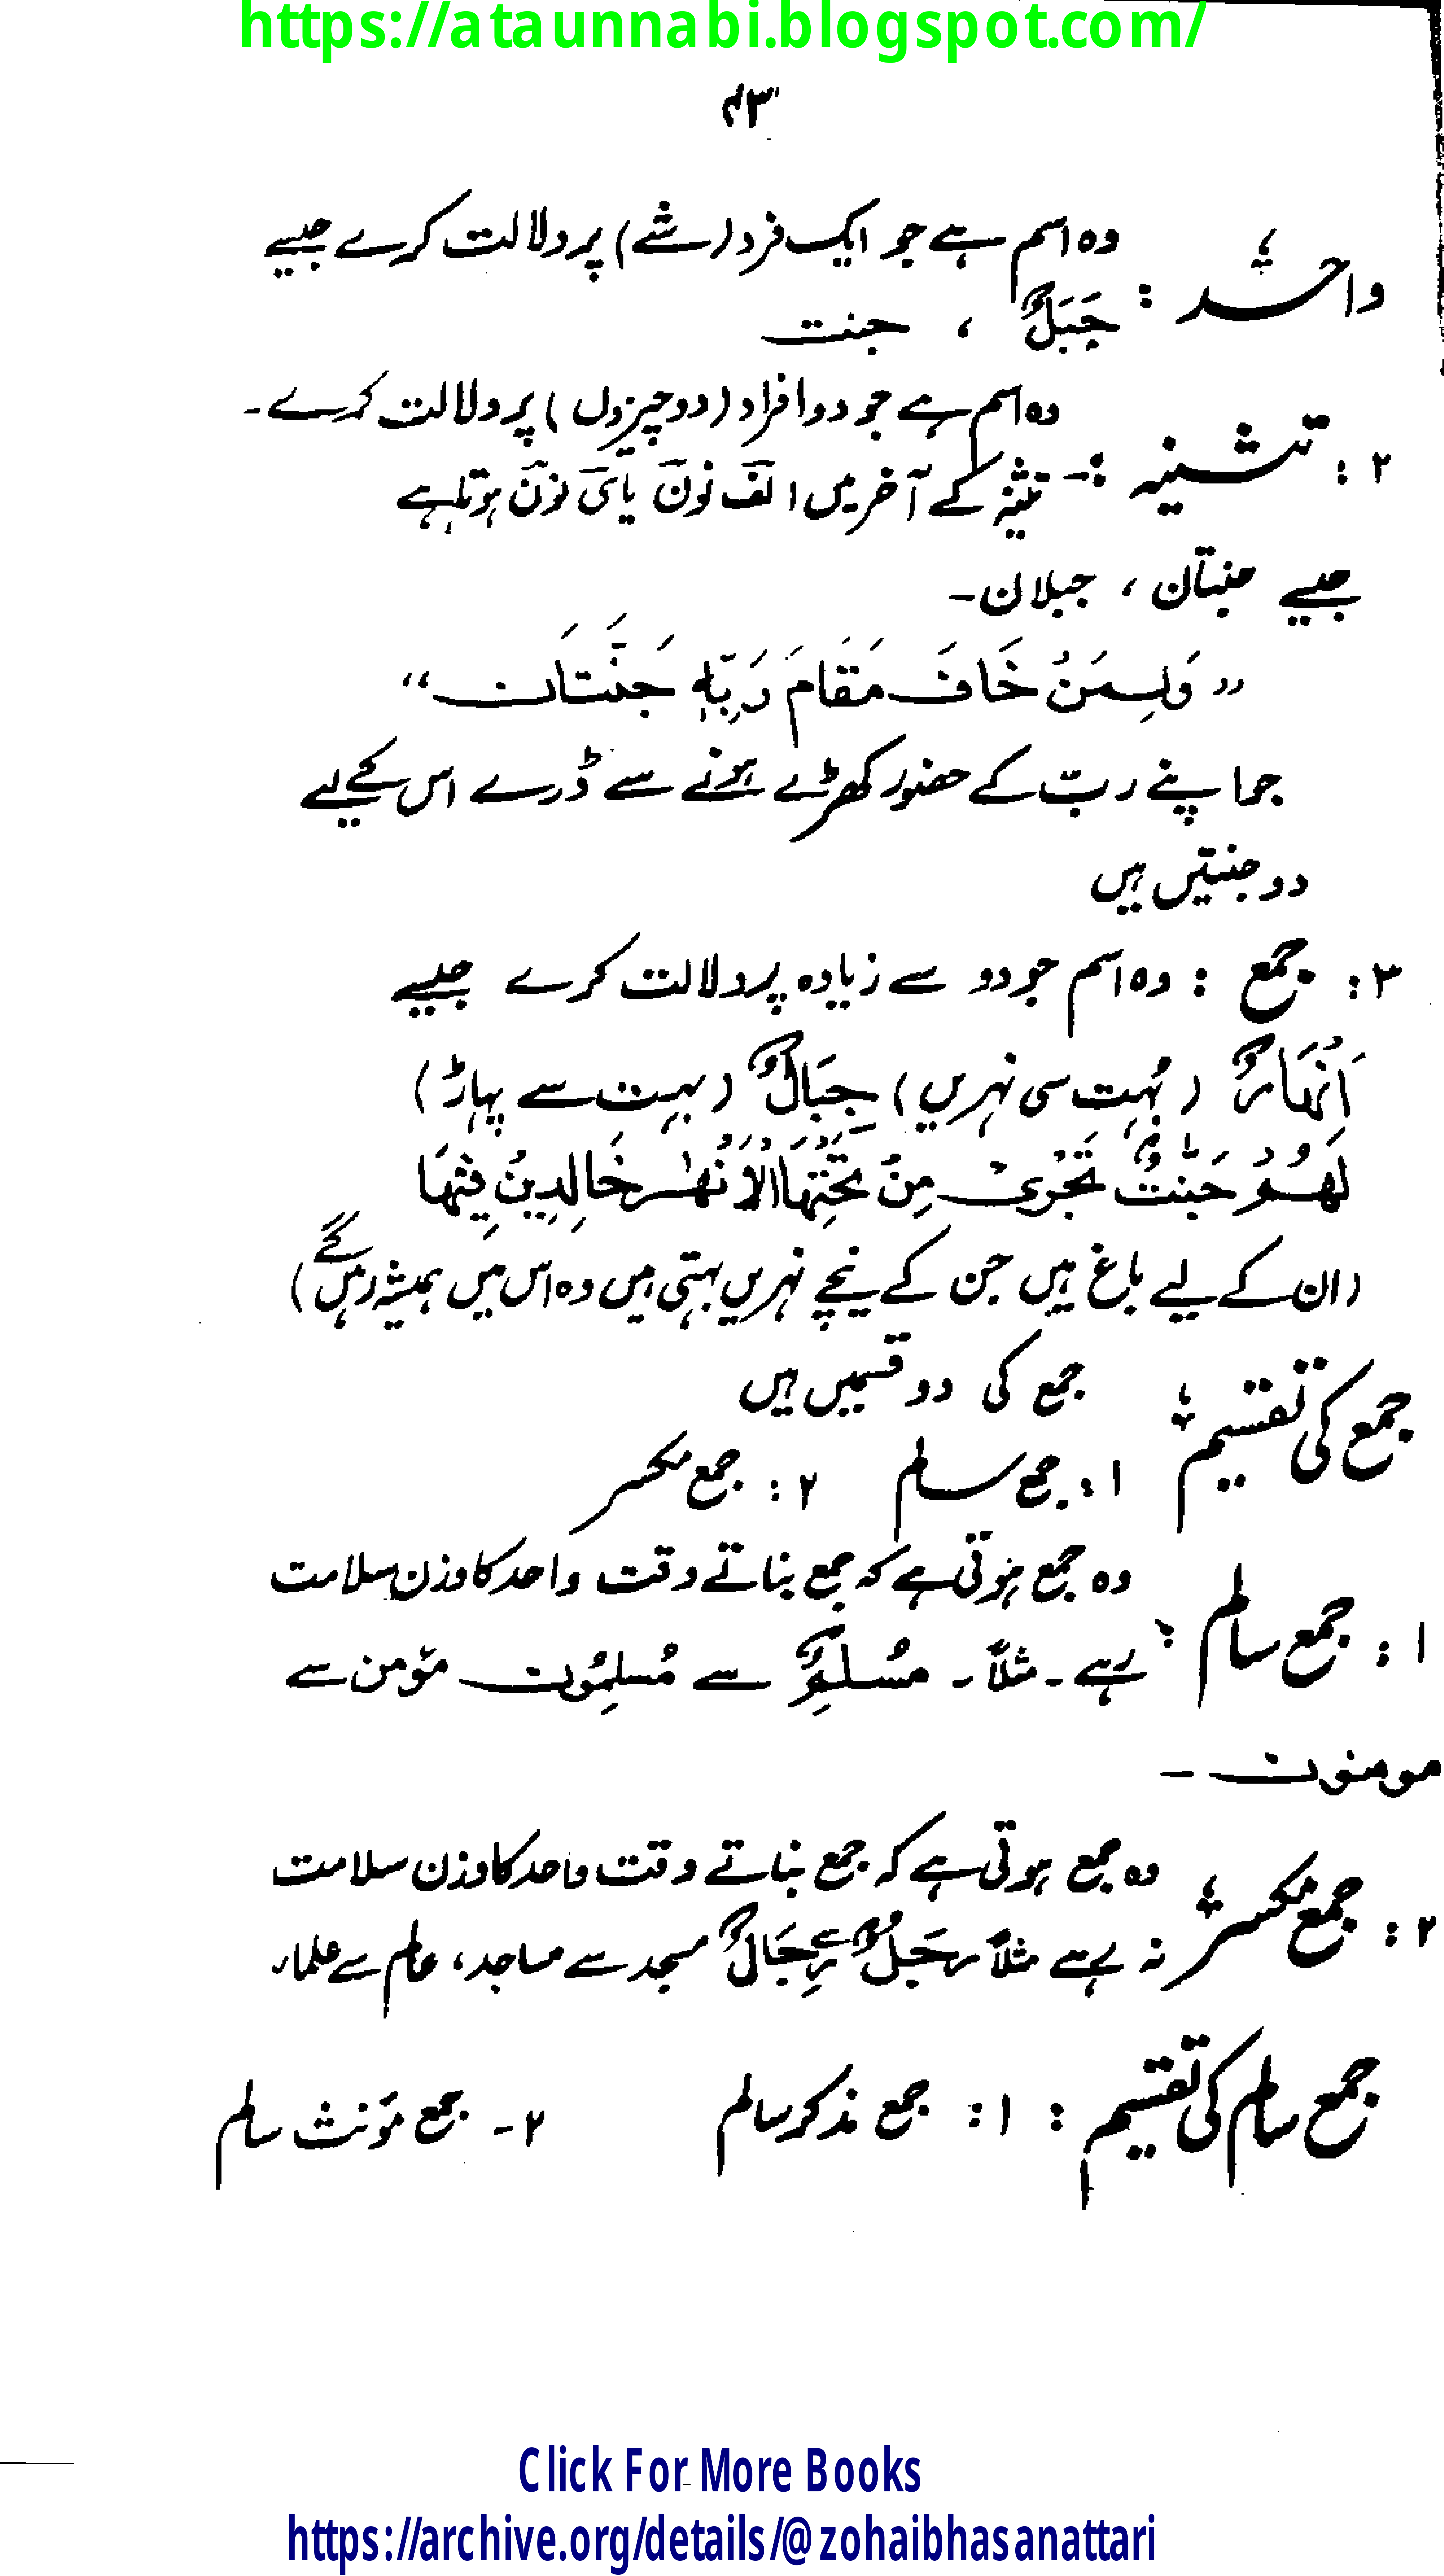 https://ataunnabi.blogspot.com/
۴۳
واحد : وہ اسم ہے جو ایک فرد (شے) پر دلالت کرے جیسے
جَبَلٌ ، جنت
۲ : تثنیہ :- وہ اسم ہے جو دو افراد (دو چیزوں) پر دلالت کرے۔
تثنیہ کے آخر میں الف نون یا ی نون ہوتا ہے
جیسے جنتان ، جبلان۔
”وَلِمَنْ خَافَ مَقَامَ رَبِّهٖ جَنَّتَان“
جو اپنے ربّ کے حضور کھڑے ہونے سے ڈرے اس کے لیے
دو جنتیں ہیں
۳ : جمع : وہ اسم جو دو سے زیادہ پر دلالت کرے جیسے
اَنْهَارٌ (بُہت سی نہریں) جِبَالٌ (بہت سے پہاڑ)
لَهُمْ جَنّٰتٌ تَجْرِیْ مِنْ تَحْتِهَا الْاَنْهٰر خَالِدِیْنَ فِیْهَا
(ان کے لیے باغ ہیں جن کے نیچے نہریں بہتی ہیں وہ اس میں ہمیشہ رہیں گے)
جمع کی تقسیم : جمع کی دو قسمیں ہیں
۱ : جمع سالم ۲ : جمع مکسر
۱ : جمع سالم : وہ جمع ہوتی ہے کہ جمع بناتے وقت واحد کا وزن سلامت
رہے۔ مثلاً۔ مُسْلِمٌ سے مُسلِمُون مؤمن سے
مومنون ۔
۲ : جمع مکسر : وہ جمع ہوتی ہے کہ جمع بناتے وقت واحد کا وزن سلامت
نہ رہے مثلاً رَجُلٌ سے رِجَالٌ مسجد سے مساجد، عالم سے علماء
جمع سالم کی تقسیم : ۱ : جمع مذکر سالم ۲۔ جمع مؤنث سالم
Click For More Books
https://archive.org/details/@zohaibhasanattari